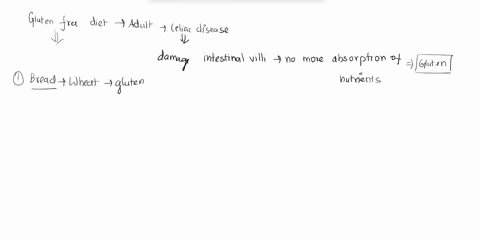 Gluten free diet → Adult → Celiac disease
damage intestinal villi → no more absorption of nutrients ⇒ Gluten
① Bread → Wheat → gluten